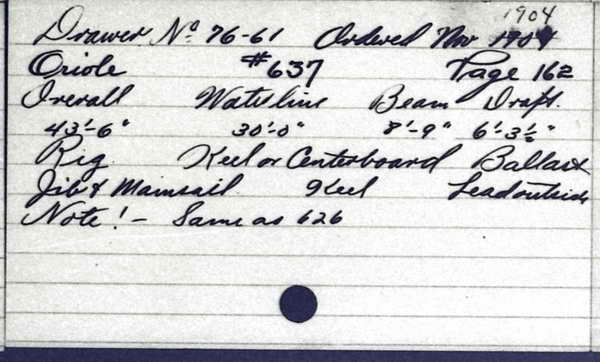 1904
Drawer No 76-61 Ordered Nov 1904
Oriole #637 Page 162
Overall Waterline Beam Draft.
43'-6" 30'-0" 8'-9" 6'-3½"
Rig Keel or Centerboard Ballast
Jib & Mainsail Keel Lead outside
Note! - Same as 626